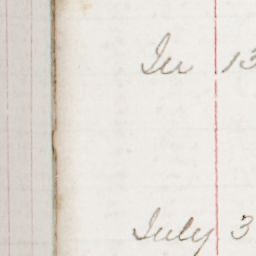 Jer 13
July 3